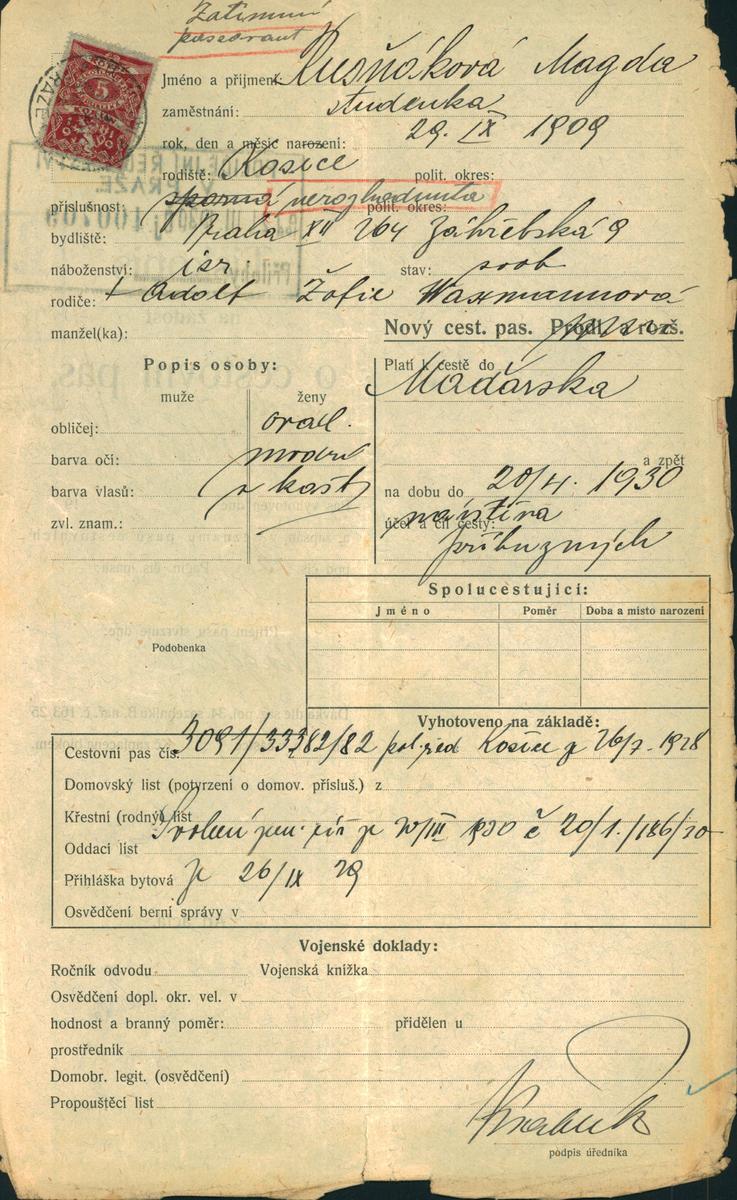 Zatimní
passbraut
Jméno a přijmení: Rusňáková Magda
zaměstnání: studentka
rok, den a měsíc narození: 29. IX 1909
rodiště: Kosice polit. okres:
příslušnost: sporná nerozhodnuta polit. okres:
bydliště: Praha XII 264 Záhřebská 9
náboženství: isr. stav: svob
rodiče: + Adolf Žofie Waxmannová
manžel(ka):
Nový cest. pas. Prodl. a rozš.
Popis osoby:
muže ženy
obličej: oval.
barva očí: modré
barva vlasů: kašt
zvl. znam.:
Platí k cestě do
Maďarska
a zpět
na dobu do 20/4. 1930
účel a cíl cesty: návštěva
příbuzných
Spolucestující:
Jméno Poměr Doba a místo narození
Podobenka
Vyhotoveno na základě:
Cestovní pas čís. 3091/33382/82 pol. řed Kosice z 26/7. 1928
Domovský list (potvrzení o domov. přísluš.) z
Křestní (rodný) list
Oddací list
20/III 1930 č 20/1./186/30
Přihláška bytová z 26/IX 29
Osvědčení berní správy v
Vojenské doklady:
Ročník odvodu Vojenská knížka
Osvědčení dopl. okr. vel. v
hodnost a branný poměr: přidělen u
prostředník
Domobr. legit. (osvědčení)
Propouštěcí list
podpis úředníka